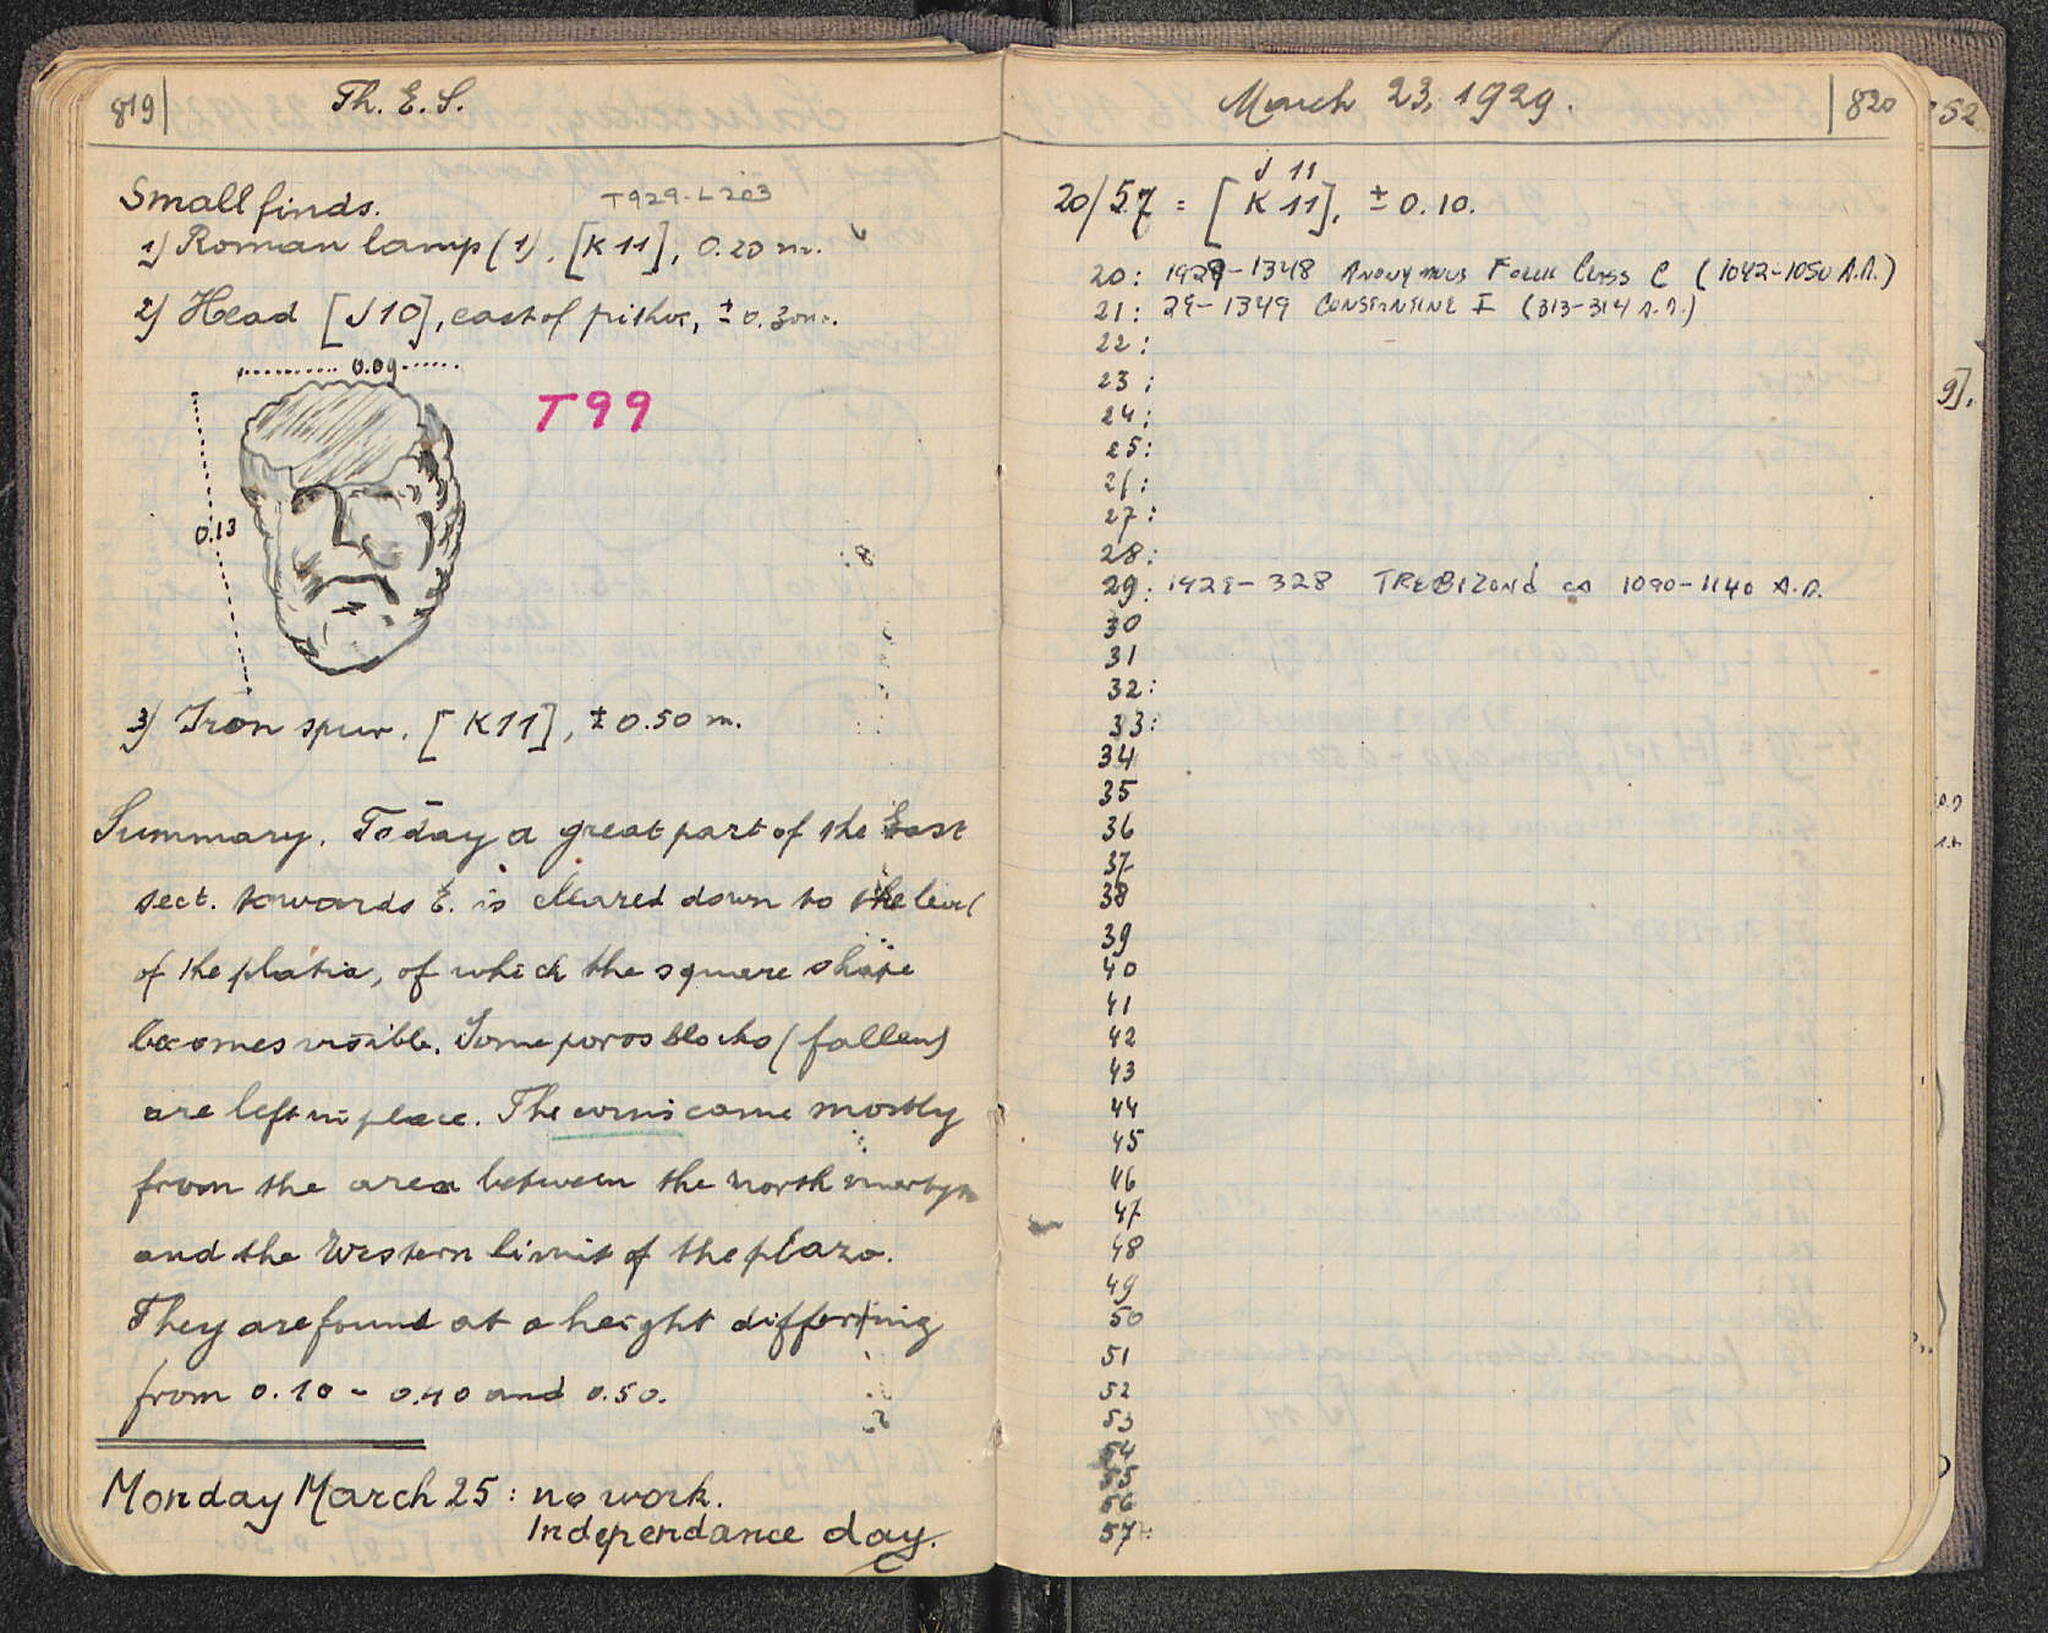 819
Th. E. S.
Small finds.
T929-L203
1) Roman lamp (1), [K11], 0.20 m.
2) Head [J10], east of pithos, ± 0.30m.
0.09
T99
0.13
3) Iron spur. [K11], ± 0.50 m.
Summary. Today a great part of the East
sect. towards E. is cleared down to the level
of the platia, of which the square shape
becomes visible. Some poros blocks (fallen)
are left in place. The coins came mostly
from the area between the north
and the Western limit of the plaza.
They are found at a height differing
from 0.10 - 0.40 and 0.50.
Monday March 25: no work.
Independance day.
March 23, 1929.
820
J 11
20/57 = [K 11], ± 0.10.
20: 1929-1348 Anonymous Follis Class C (1042-1050 A.D.)
21: 29-1349 Constantine I (313-314 A.D.)
22:
23:
24:
25:
26:
27:
28:
29: 1929-328 TREBIZOND ca 1090-1140 A.D.
30
31
32:
33:
34
35
36
37
38
39
40
41
42
43
44
45
46
47
48
49
50
51
52
53
54
55
56
57:
52
9].